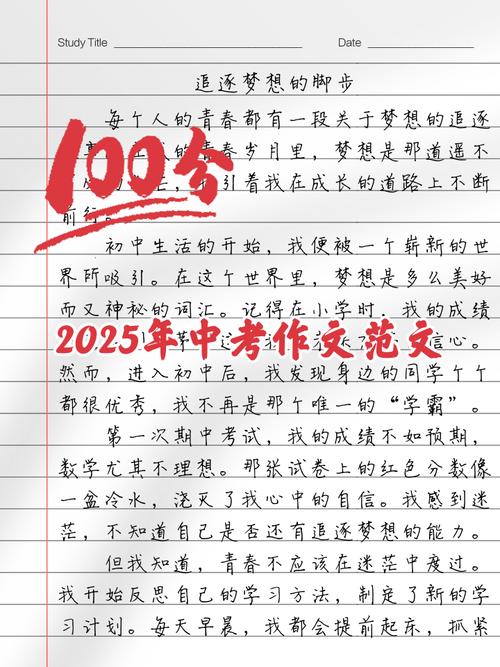 Study Title
Date
追逐梦想的脚步
每个人的青春都有一段关于梦想的追逐
的青春岁月里，梦想是那道遥不
引着我在成长的道路上不断
前行。
100分
初中生活的开始，我便被一个崭新的世
界所吸引。在这个世界里，梦想是多么美好
而又神秘的词汇。记得在小学时，我的成绩
信心。
2025年中考作文范文
然而，进入初中后，我发现身边的同学个个
都很优秀，我不再是那个唯一的“学霸”。
第一次期中考试，我的成绩不如预期，
数学尤其不理想。那张试卷上的红色分数像
一盆冷水，浇灭了我心中的自信。我感到迷
茫，不知道自己是否还有追逐梦想的能力。
但我知道，青春不应该在迷茫中度过。
我开始反思自己的学习方法，制定了新的学
习计划。每天早晨，我都会提前起床，抓紧